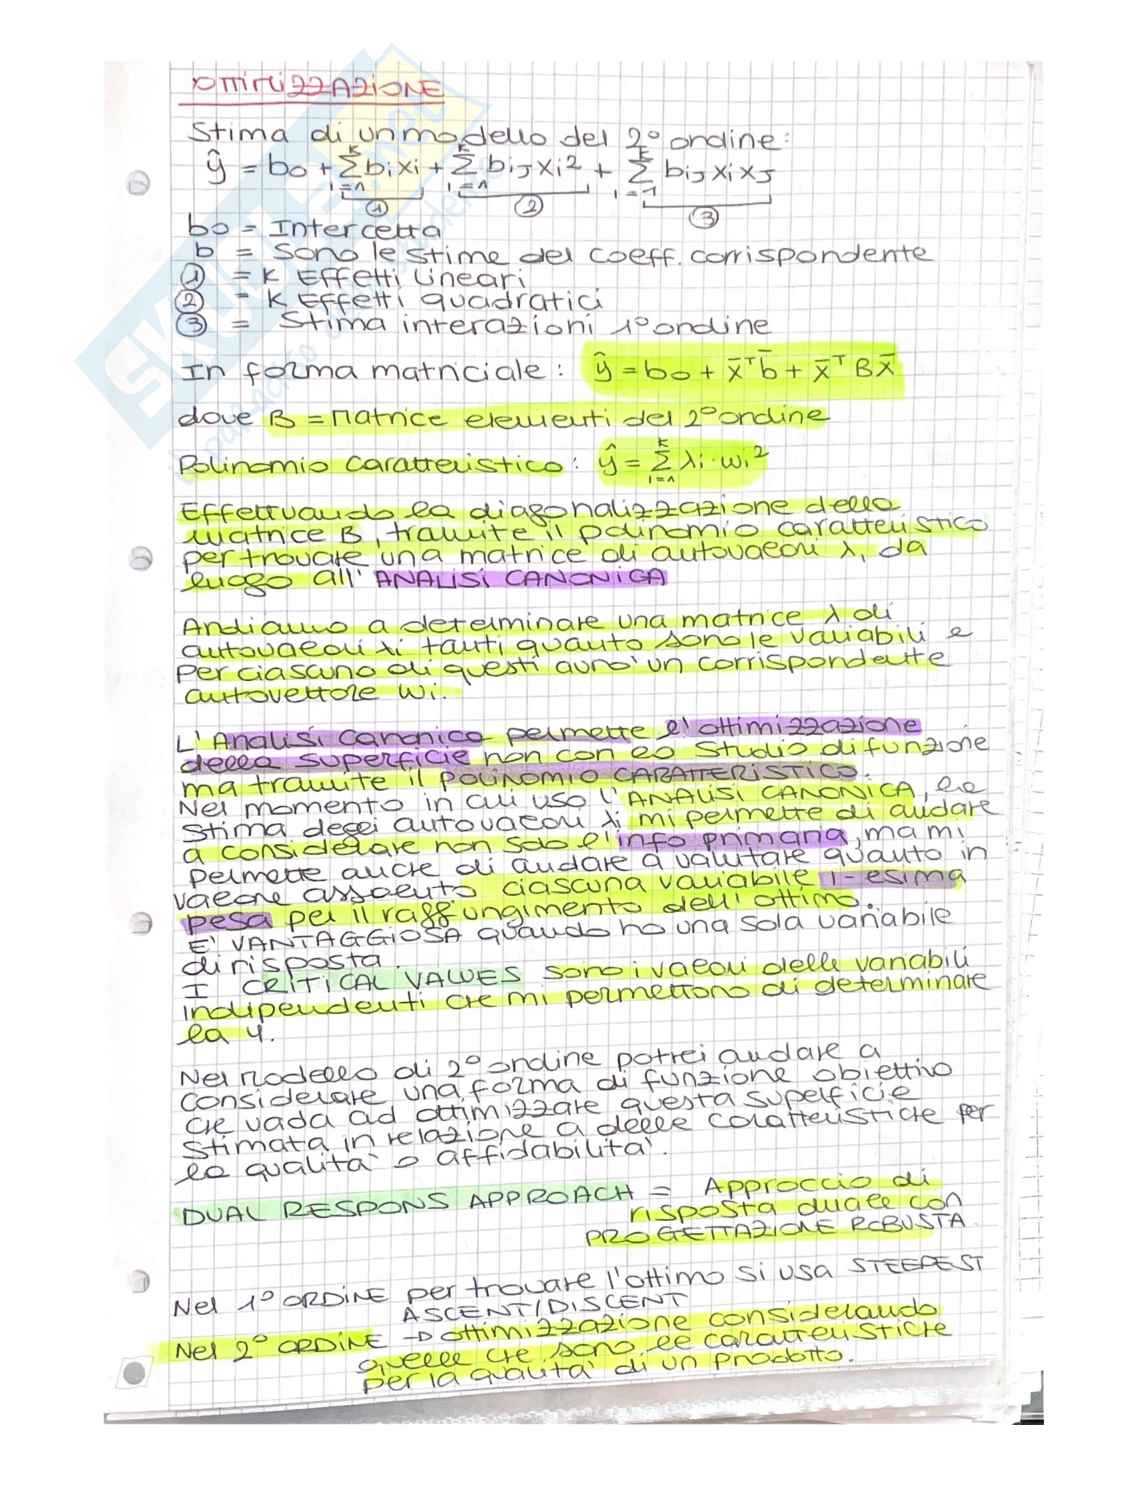 OTTIMIZZAZIONE
Stima di un modello del 2° ordine:
ŷ = b0 + Σ bixi + Σ bijxi² + Σ bijxixj
k k k
i=1 i=1 i=1
① ② ③
b0 = Intercetta
b = Sono le stime del coeff. corrispondente
① = K Effetti lineari
② = K Effetti quadratici
③ = Stima interazioni 1° ordine
In forma matriciale: ŷ = b0 + x̄ᵀb̄ + x̄ᵀBx̄
dove B = Matrice elementi del 2° ordine
Polinomio Caratteristico: ŷ = Σ λi·wi²
k
i=1
Effettuando la diagonalizzazione della
matrice B, tramite il polinomio caratteristico
per trovare una matrice di autovalori λ, da
luogo all'ANALISI CANONICA
Andiamo a determinare una matrice λ di
autovalori λi tanti quanto sono le variabili e
Per ciascuno di questi avro' un corrispondente
autovettore wi.
L'Analisi Canonica permette l'ottimizzazione
della superficie non con lo studio di funzione
ma tramite il POLINOMIO CARATTERISTICO.
Nel momento in cui uso l'ANALISI CANONICA, la
stima degli autovalori λi mi permette di andare
a considerare non solo l'info primaria, ma mi
permette anche di andare a valutare quanto in
valore assoluto ciascuna variabile i-esima
pesa per il raggiungimento dell'ottimo.
E' VANTAGGIOSA quando ho una sola variabile
di risposta.
I CRITICAL VALUES sono i valori delle variabili
indipendenti che mi permettono di determinare
la Y.
Nel Modello di 2° ordine potrei andare a
considerare una forma di funzione obiettivo
che vada ad ottimizzare questa superficie
stimata in relazione a delle caratteristiche per
la qualita' o affidabilita'.
DUAL RESPONS APPROACH = Approccio di
risposta duale con
PROGETTAZIONE ROBUSTA
Nel 1° ORDINE per trovare l'ottimo si usa STEEPEST
ASCENT/DISCENT
Nel 2° ORDINE → ottimizzazione considerando
quelle che sono le caratteristiche
per la qualita' di un prodotto.